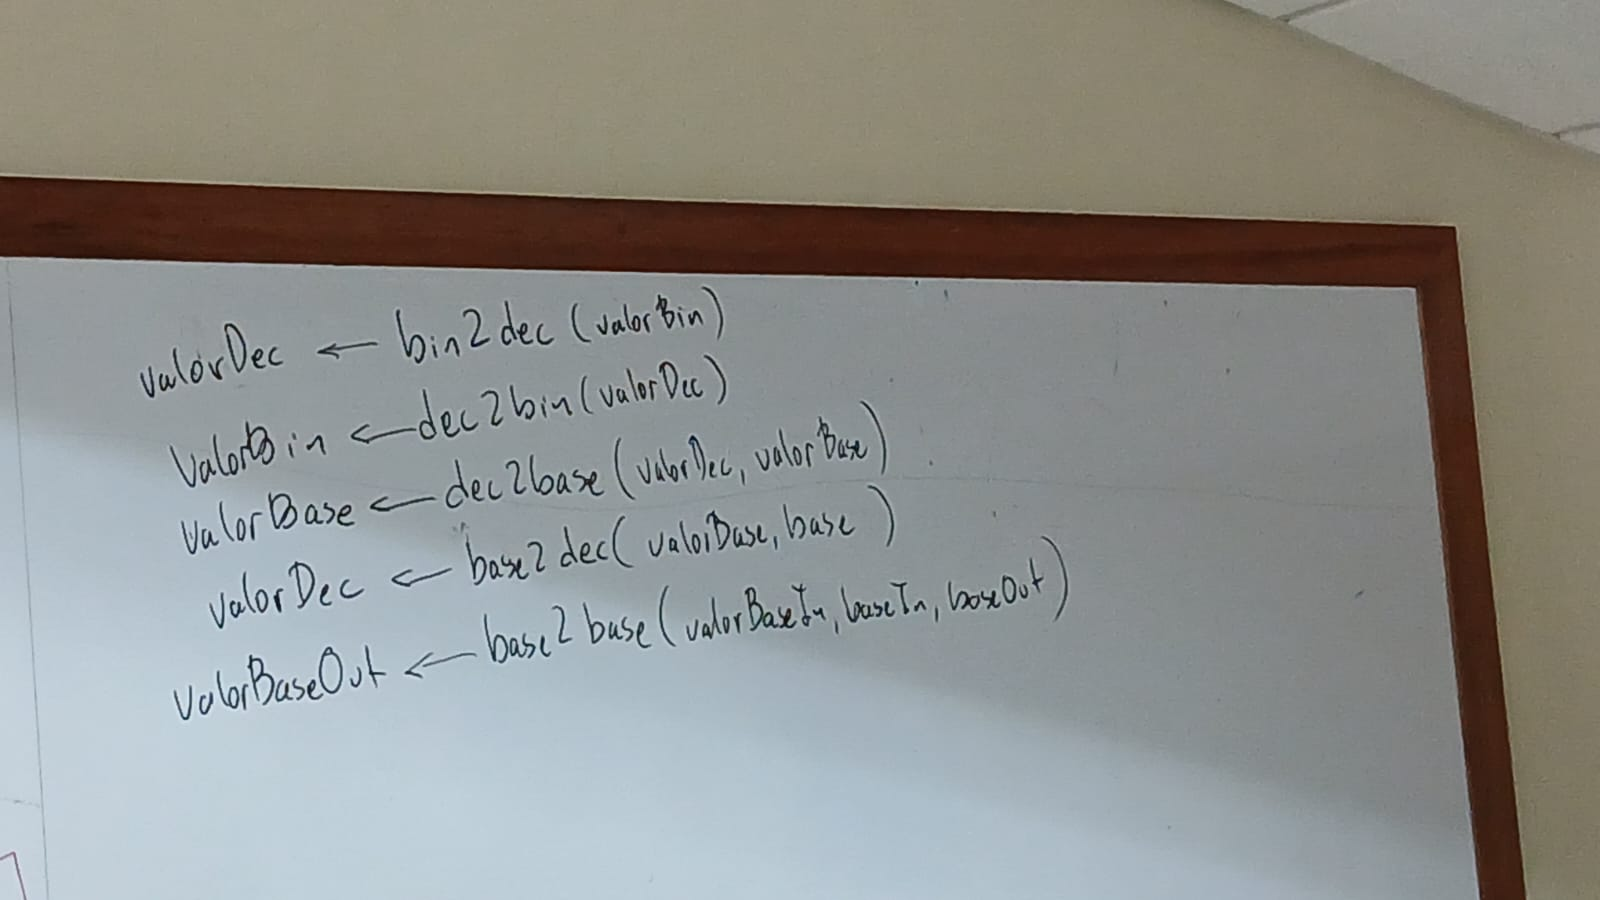 valorDec ← bin2dec (valorBin)
ValorBin ← dec2bin (valorDec)
ValorBase ← dec2base (valorDec, valorBase)
valorDec ← base2dec( valorBase, base )
valorBaseOut ← base2base (valorBaseIn, baseIn, baseOut)